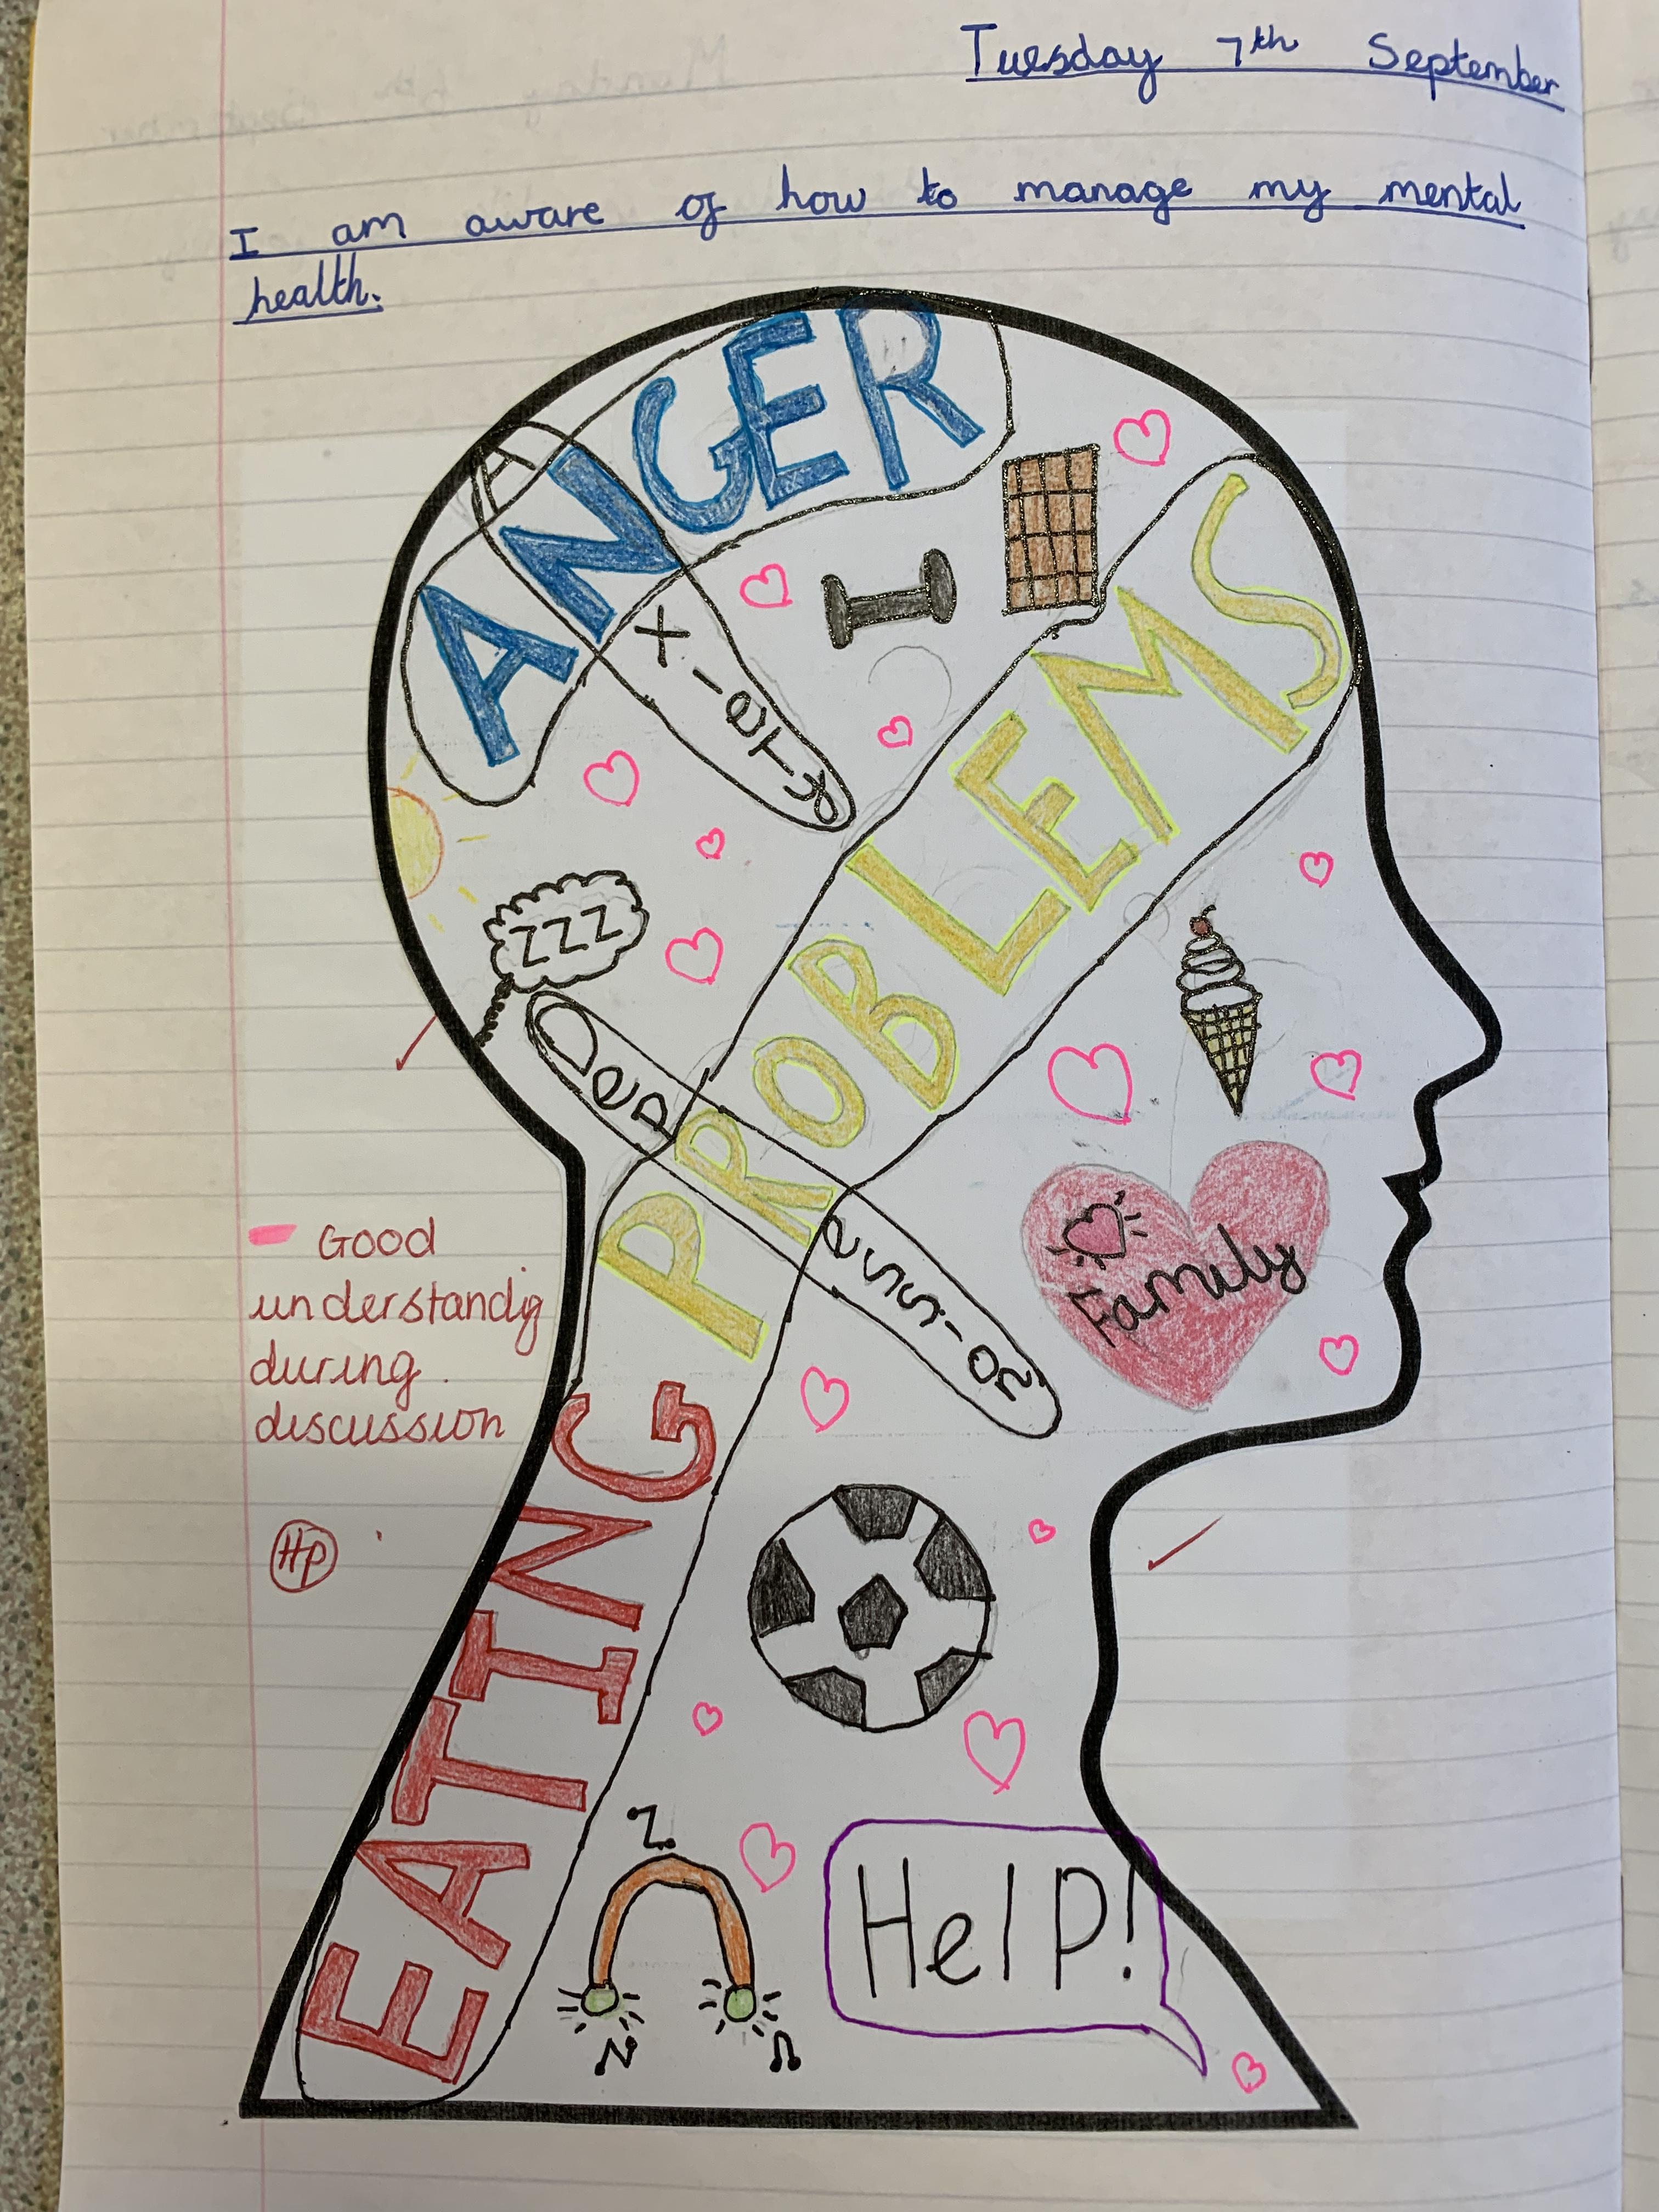 Tuesday 7th September
I am aware of how to manage my mental
health.
ANGER
A xieTy
PROBLEMS
ZZZ
Dep ession
Family
- Good
understandig
during
discussion
HP
EATING
HelP!